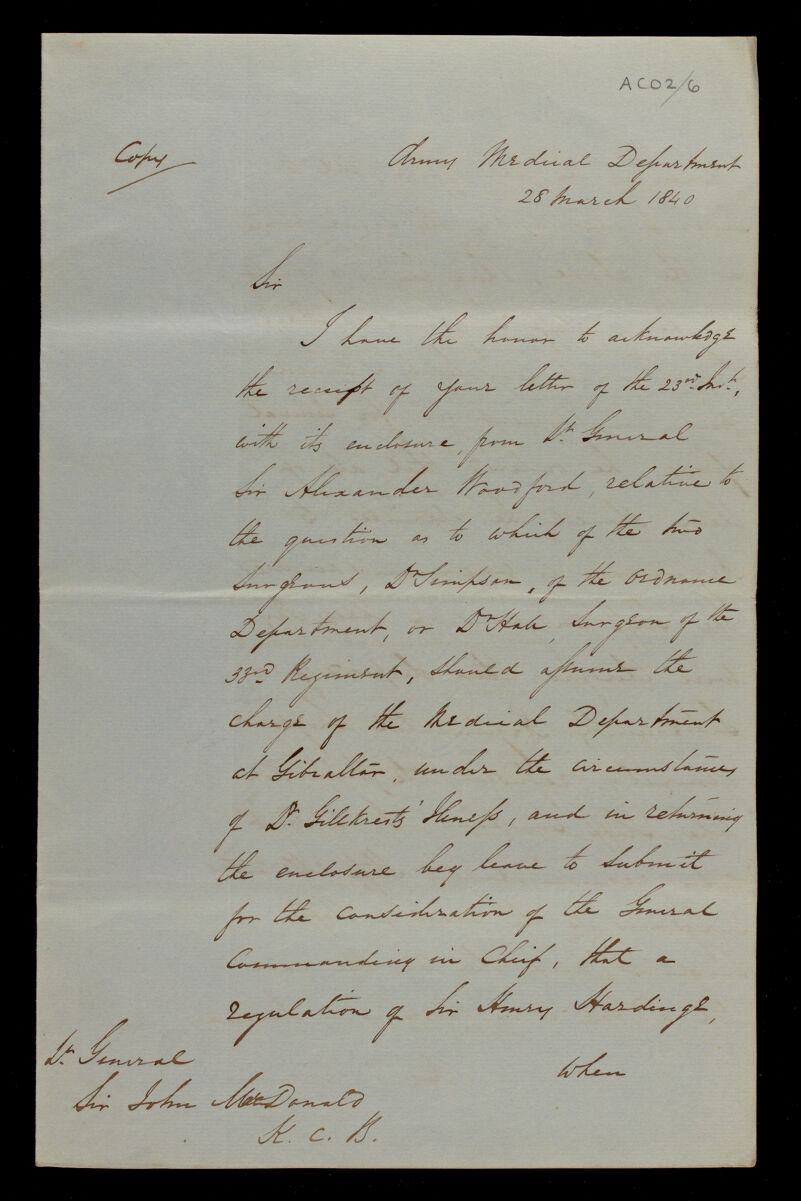 ACO2/6
Copy
Army Medical Department
28 March 1840
Sir
I have the honor to acknowledge
the receipt of your letter of the 23rd. Inst.,
with its enclosure, from Lt. General
Sir Alexander Woodford, relative to
the question as to which of the two
Surgeons, Dr Simpson, of the Ordnance
Department, or Dr Hall, Surgeon of the
33rd Regiment, should assume the
charge of the Medical Department
at Gibraltar, under the circumstances
of Dr. Gillkrest's Illness, and in returning
the enclosure beg leave to submit
for the consideration of the General
Commanding in Chief, that a
regulation of Sir Henry Hardinge,
when
Lt. General
Sir John MacDonald
K. C. B.